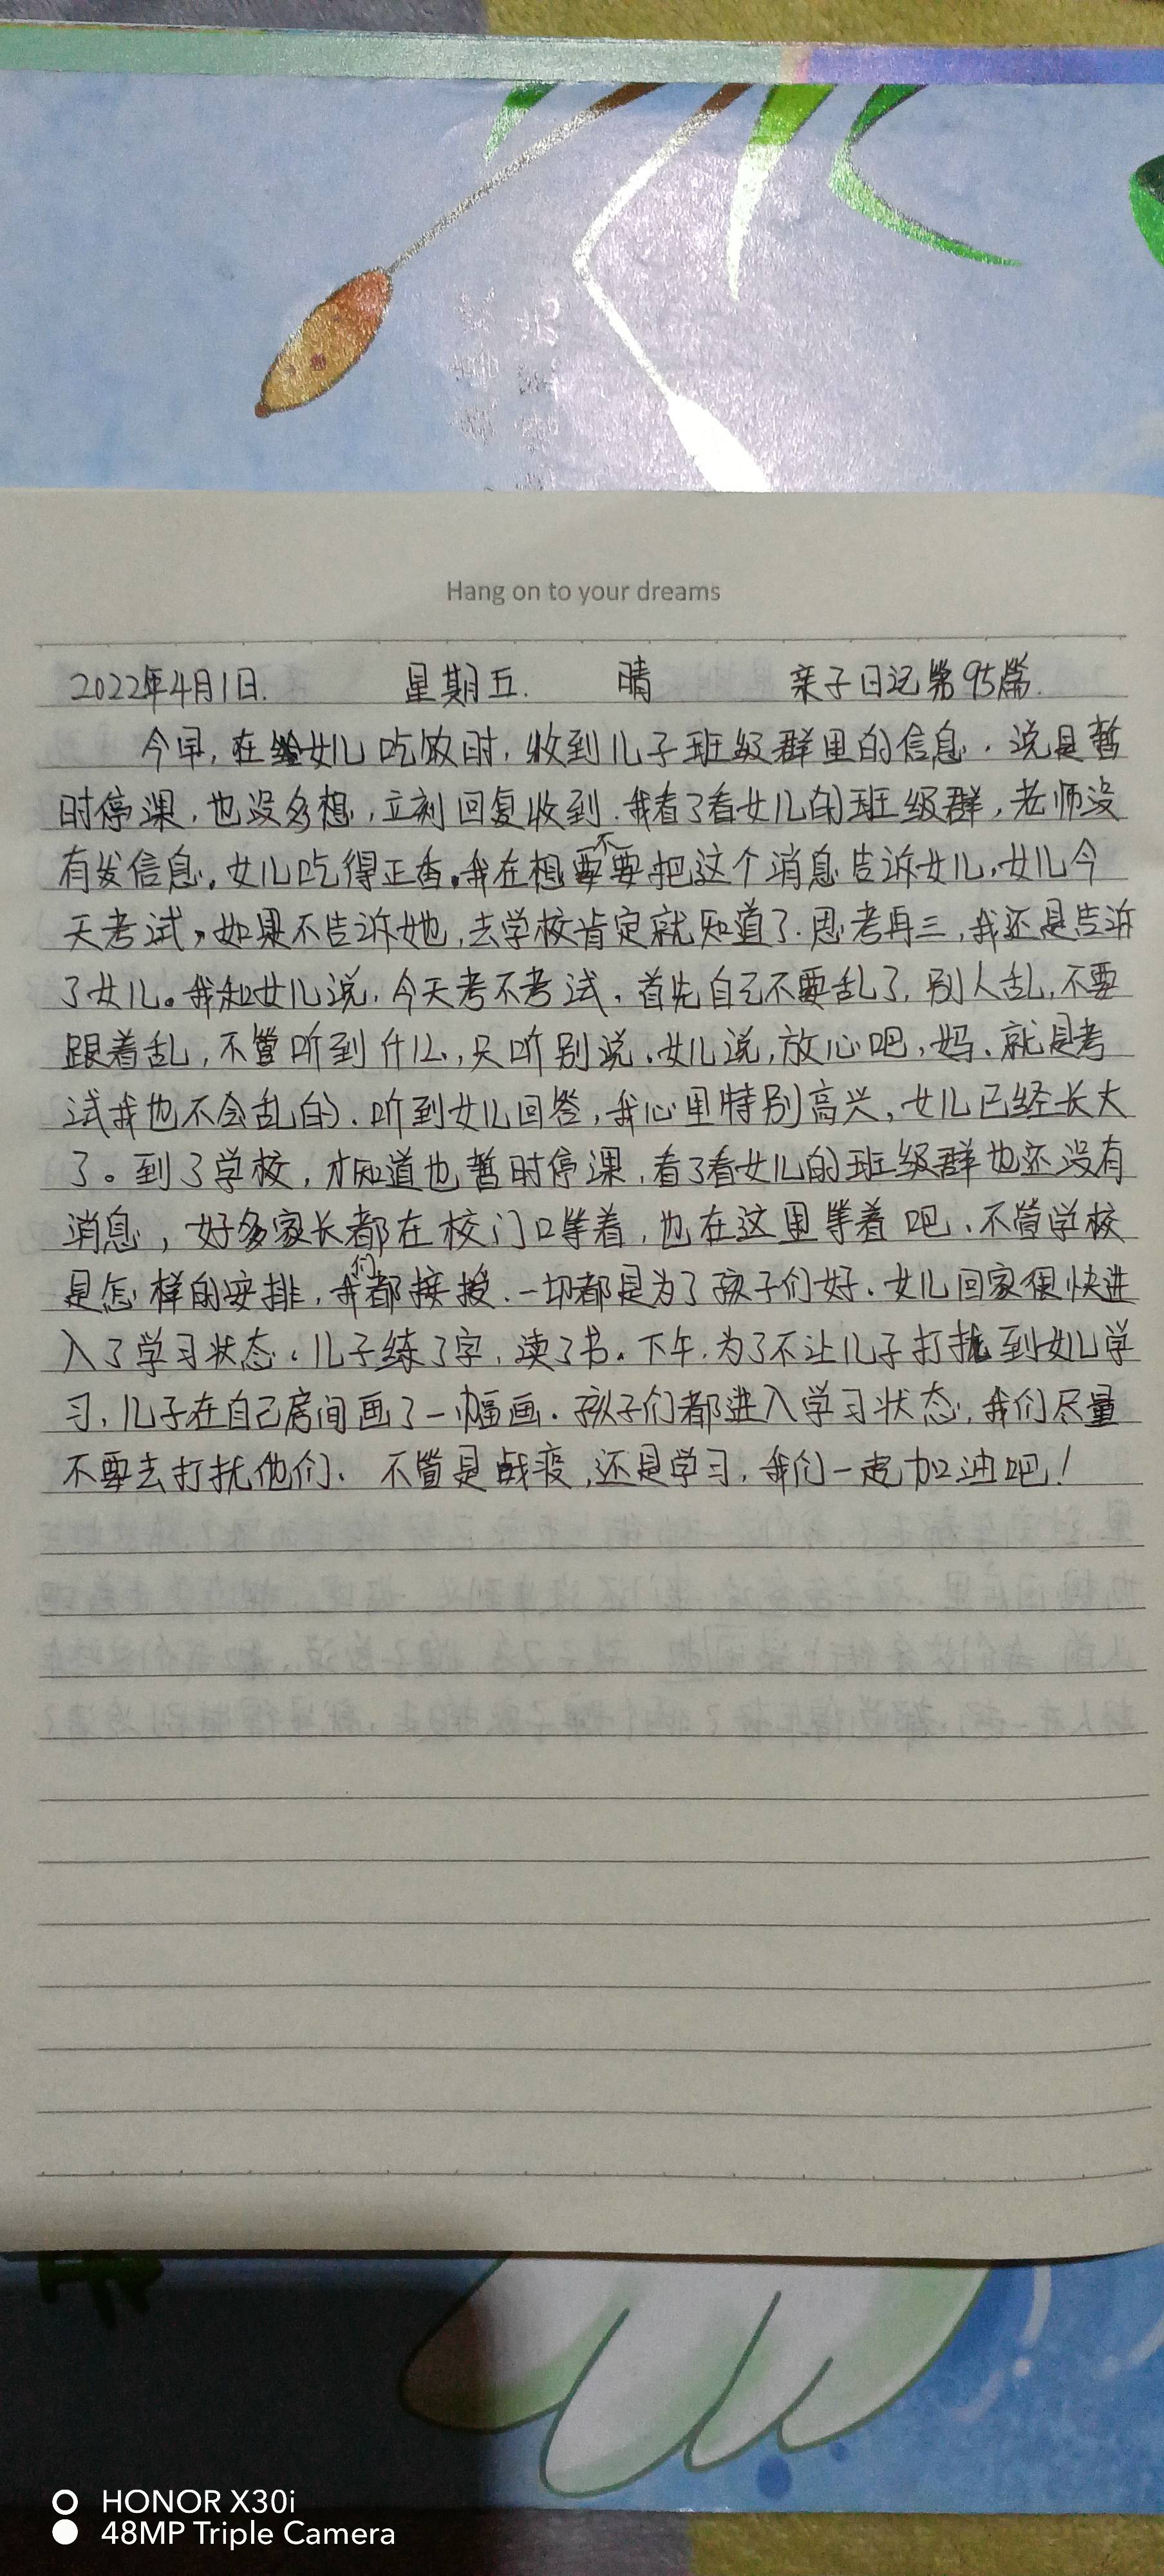 Hang on to your dreams
2022年4月1日. 星期五. 晴 亲子日记第95篇.
今早，在给女儿吃饭时，收到儿子班级群里的信息，说是暂
时停课，也没多想，立刻回复收到.我看了看女儿的班级群，老师没
有发信息。女儿吃得正香。我在想要不要把这个消息告诉女儿，女儿今
天考试，如果不告诉她，去学校肯定就知道了.思考再三，我还是告诉
了女儿。我和女儿说，今天考不考试，首先自己不要乱了，别人乱，不要
跟着乱，不管听到什么，只听别说.女儿说，放心吧，妈、就是考
试我也不会乱的.听到女儿回答，我心里特别高兴，女儿已经长大
了。到了学校，才知道也暂时停课，看了看女儿的班级群也还没有
消息，好多家长都在校门口等着，也在这里等着吧、不管学校
是怎样的安排，我们都接授.一切都是为了孩子们好.女儿回家很快进
入了学习状态.儿子练了字，读了书。下午，为了不让儿子打扰到女儿学
习，儿子在自己房间画了一幅画.孩子们都进入学习状态，我们尽量
不要去打扰他们、不管是战疫，还是学习，我们一起加油吧！
HONOR X30i
48MP Triple Camera